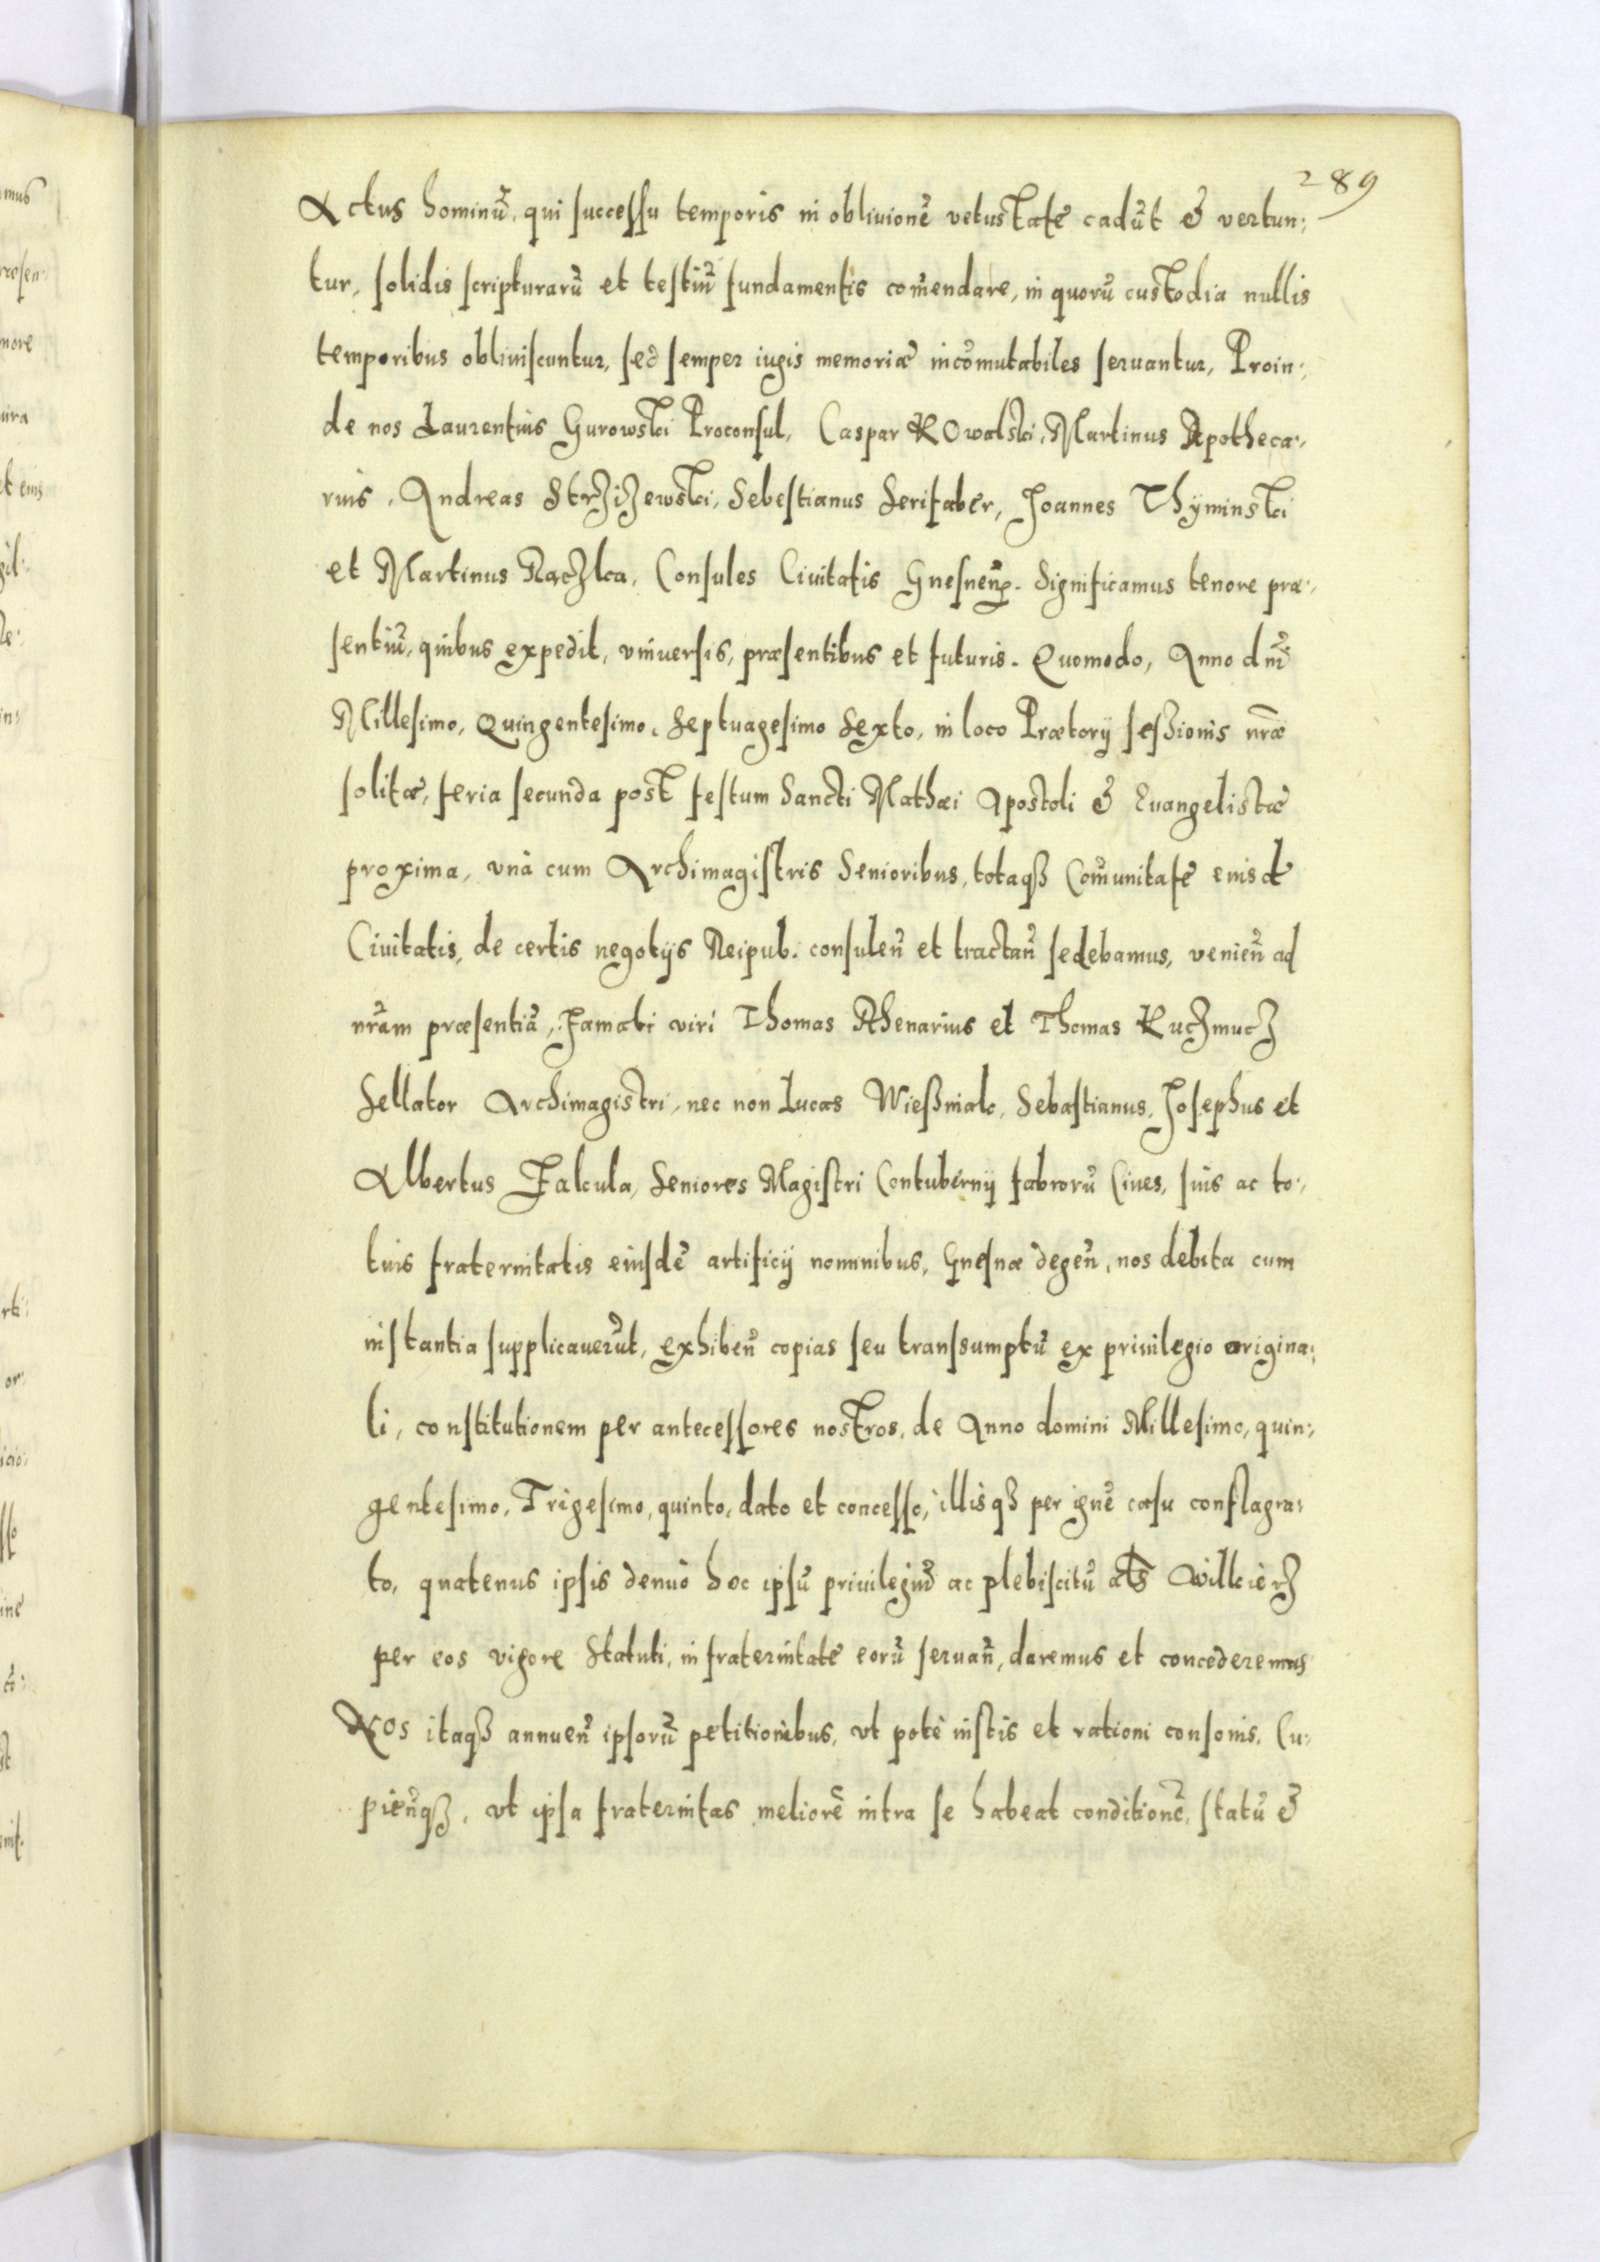 289
Actus hominũ, qui successu temporis in oblivionẽ vetustate cadũt & vertun:
tur, solidis scripturarũ et testiũ fundamentis com̃endare, in quorũ custodia nullis
temporibus obliviscuntur, sed semper iugis memoriæ incõmutabiles seruantur, Proin:
de nos Laurentius Gurowski Proconsul, Caspar KOwalski, Martinus Apotheca:
rius, Andreas Strzizewski, Sebestianus Serifaber, Joannes Thÿminski
et Martinus Raczka, Consules Ciuitatis Gnesneñ. Significamus tenore præ:
sentiũ, quibus expedit, vniuersis, præsentibus et futuris. Quomodo, Anno dnĩ
Millesimo, Quingentesimo, Septuagesimo Sexto, in loco Prætorij seßionis nr̃æ
solitæ, feria secunda post festum Sancti Mathæi Apostoli & Euangelistæ
proxima, vnà cum Archimagistris Senioribus, totaqȝ Com̃unitate eiusdẽ
Ciuitatis, de certis negotijs Reipub. consuleñ et tractañ sedebamus, venieñ ad
nr̃am præsentiã, Famati viri Thomas Rhenarius et Thomas Kuczmucz
Sellator Archimagistri, nec non Lucas Wießniak, Sebastianus, Josephus et
Albertus Falcula, Seniores Magistri Contubernij fabrorũ Ciues, suis ac to:
tius fraternitatis eiusdẽ artificij nominibus, Gnesnæ degeñ, nos debita cum
instantia supplicauerũt, exhibeñ copias seu transsumptũ ex priuilegio origina:
li, constitutionem per antecessores nostros, de Anno domini Millesimo, quin:
gentesimo, Trigesimo, quinto, dato et concesso, illisqȝ per ignẽ casu conflagra:
to, quatenus ipsis denuò hoc ipsũ priuilegiũ ac plebiscitũ als Willcierz
per eos vigore Statuti, in fraternitate eorũ seruañ, daremus et concederemus
NOs itaqȝ annueñ ipsorũ petitionibus, vt potè iustis et rationi consonis, Cu:
pieñqȝ, vt ipsa fraternitas meliorẽ intra se habeat conditionẽ, statũ &